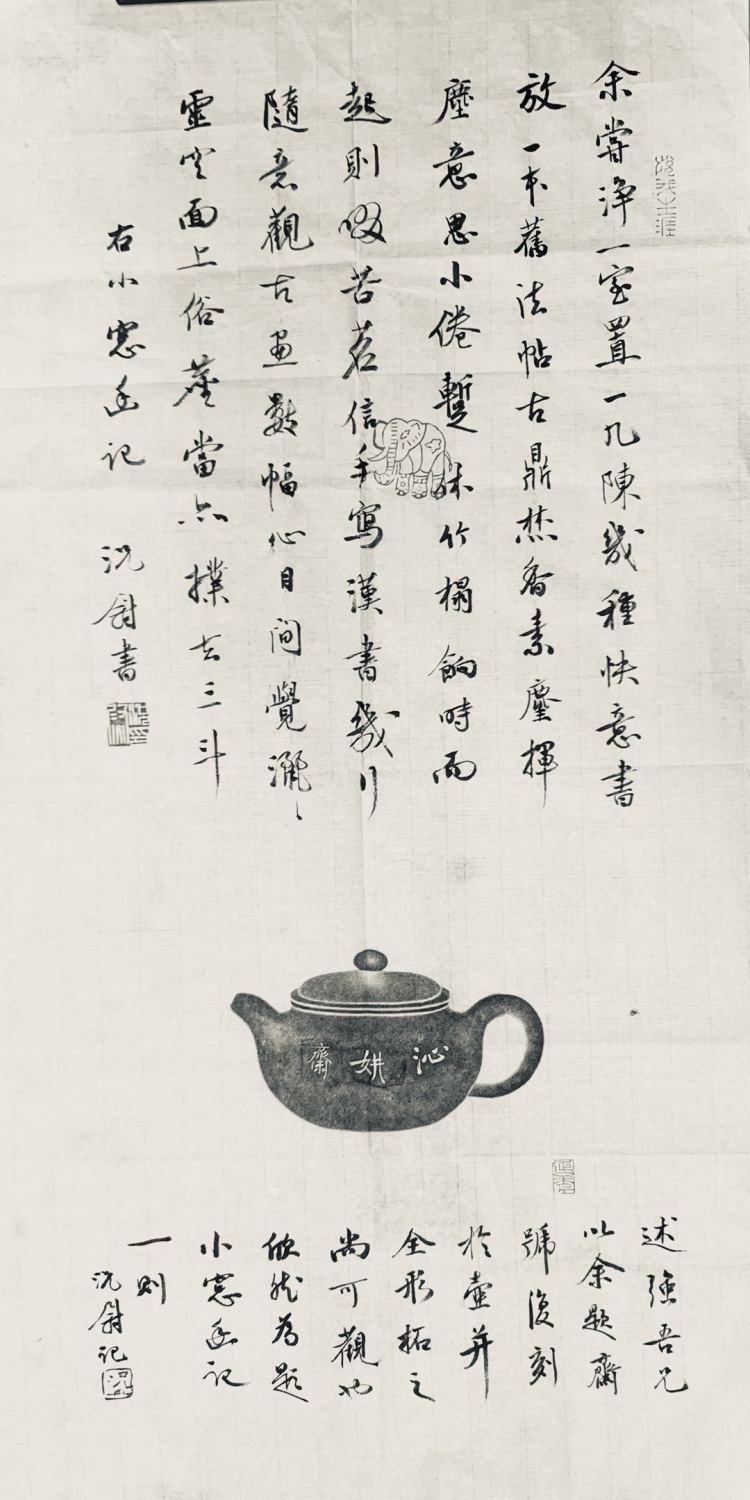 余嘗淨一室置一几陳幾種快意書
放一本舊法帖古鼎焚香素麈揮
塵意思小倦暫休竹榻餉時而
起則啜苦茗信手寫漢書幾行
隨意觀古畫數幅心目間覺灑灑
靈空面上俗塵當亦撲去三斗
右小窓幽記 沉尉書
沁姘齋
述强吾兄
以余題齋
號復刻
於壺并
全形拓之
尚可觀也
欣然為題
小窓幽記
一則
沉尉記